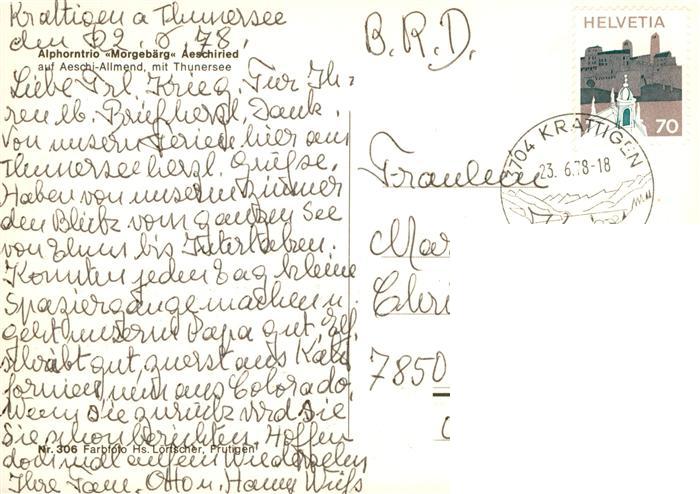 Krattigen a Thunersee
den 22. 6. 78.
Alphorntrio «Morgebärg« Aeschiried
auf Aeschi-Allmend, mit Thunersee
Liebe Frl. Krieg. Für Ih-
ren lb. Brief herzl. Dank.
Von unsern Ferien hier am
Thunersee herzl. Grüsse.
Haben von unserm Zimmer
den Blick vom ganzen See
von Thun bis Interlaken.
Konnten jeden Tag kleine
Spaziergänge machen u.
geht unserm Papa gut.
schreibt gut, zuerst aus Kali
fornien, nun aus Colorado,
Wenn sie zurück wird sie
Sie schon berichten. Hoffen
doch mal auf ein Wiedersehen
Nr. 306 Farbfoto Hs. Lörtscher, Frutigen
Ihre Fam. Otto u. Hanny
B.R.D.
HELVETIA
70
3704 KRATTIGEN
23. 6.78-18
Fräulein
Mar
Chri
7850